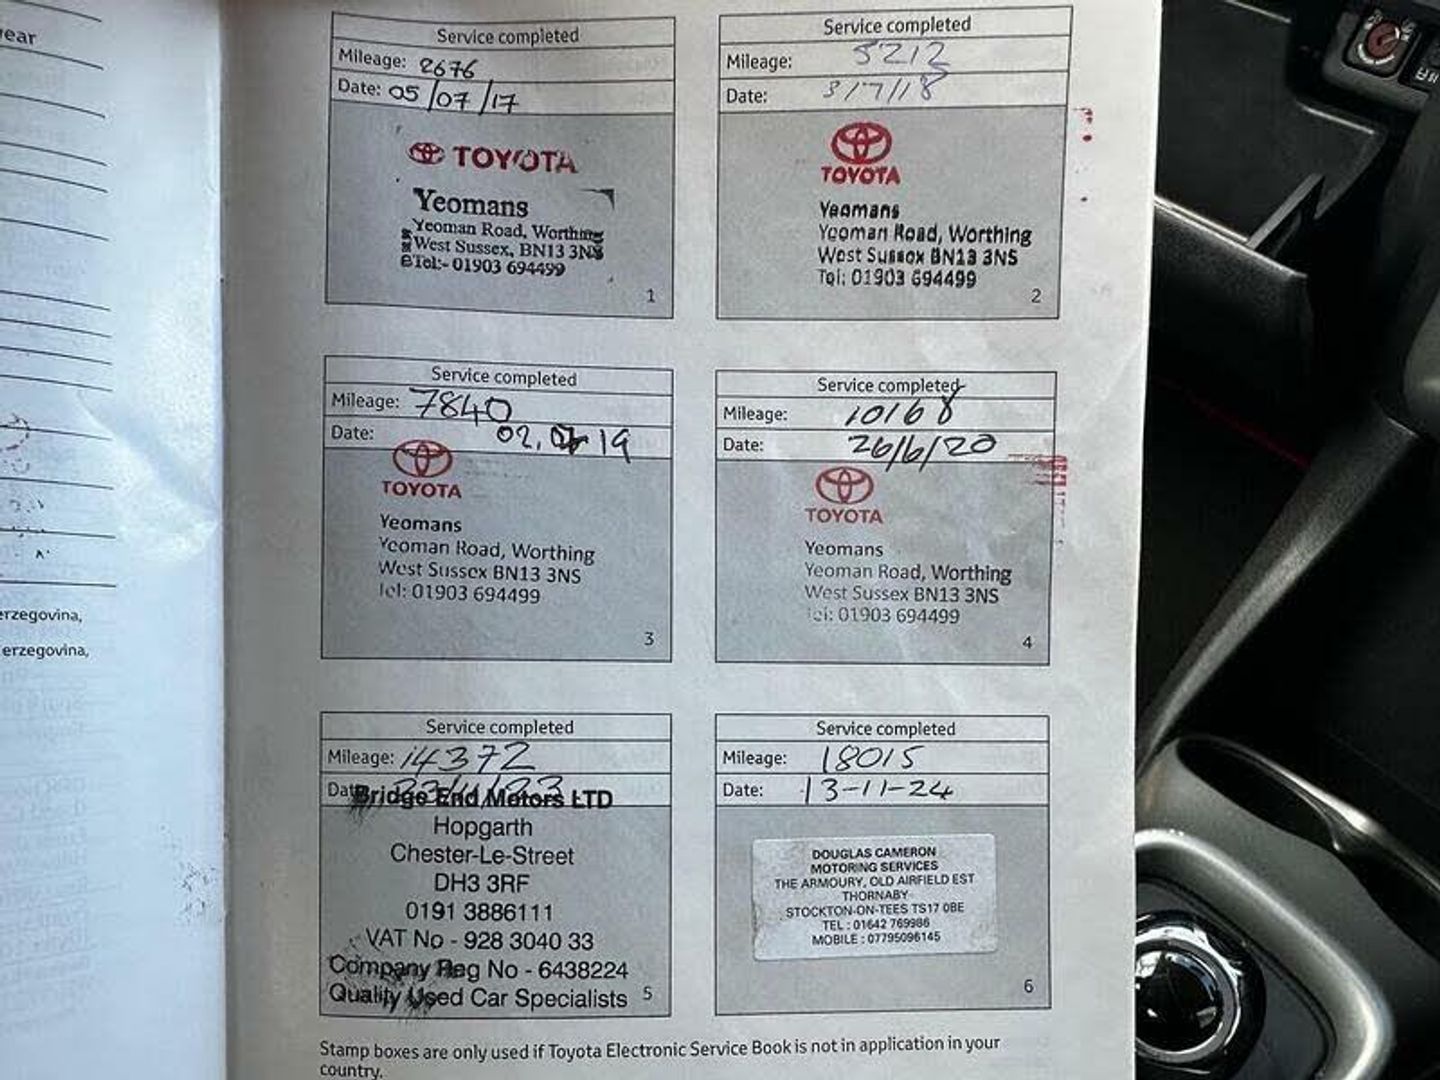 ear
erzegovina,
erzegovina,
Service completed
Mileage: 2676
Date: 05/07/17
TOYOTA
Yeomans
Yeoman Road, Worthing
West Sussex, BN13 3NS
Tel:- 01903 694499
1
Service completed
Mileage: 5212
Date: 3/7/18
TOYOTA
Yeomans
Yeoman Road, Worthing
West Sussex BN13 3NS
Tel: 01903 694499
2
Service completed
Mileage: 7840
Date: 02. 07 19
TOYOTA
Yeomans
Yeoman Road, Worthing
West Sussex BN13 3NS
Tel: 01903 694499
3
Service completed
Mileage: 10168
Date: 26/6/20
TOYOTA
Yeomans
Yeoman Road, Worthing
West Sussex BN13 3NS
Tel: 01903 694499
4
Service completed
Mileage: 14372
Date:
Bridge End Motors LTD
Hopgarth
Chester-Le-Street
DH3 3RF
0191 3886111
VAT No - 928 3040 33
Company Reg No - 6438224
Quality Used Car Specialists
5
Service completed
Mileage: 18015
Date: 13-11-24
DOUGLAS CAMERON
MOTORING SERVICES
THE ARMOURY, OLD AIRFIELD EST
THORNABY
STOCKTON-ON-TEES TS17 0BE
TEL : 01642 769986
MOBILE : 07795096145
6
Stamp boxes are only used if Toyota Electronic Service Book is not in application in your
country.